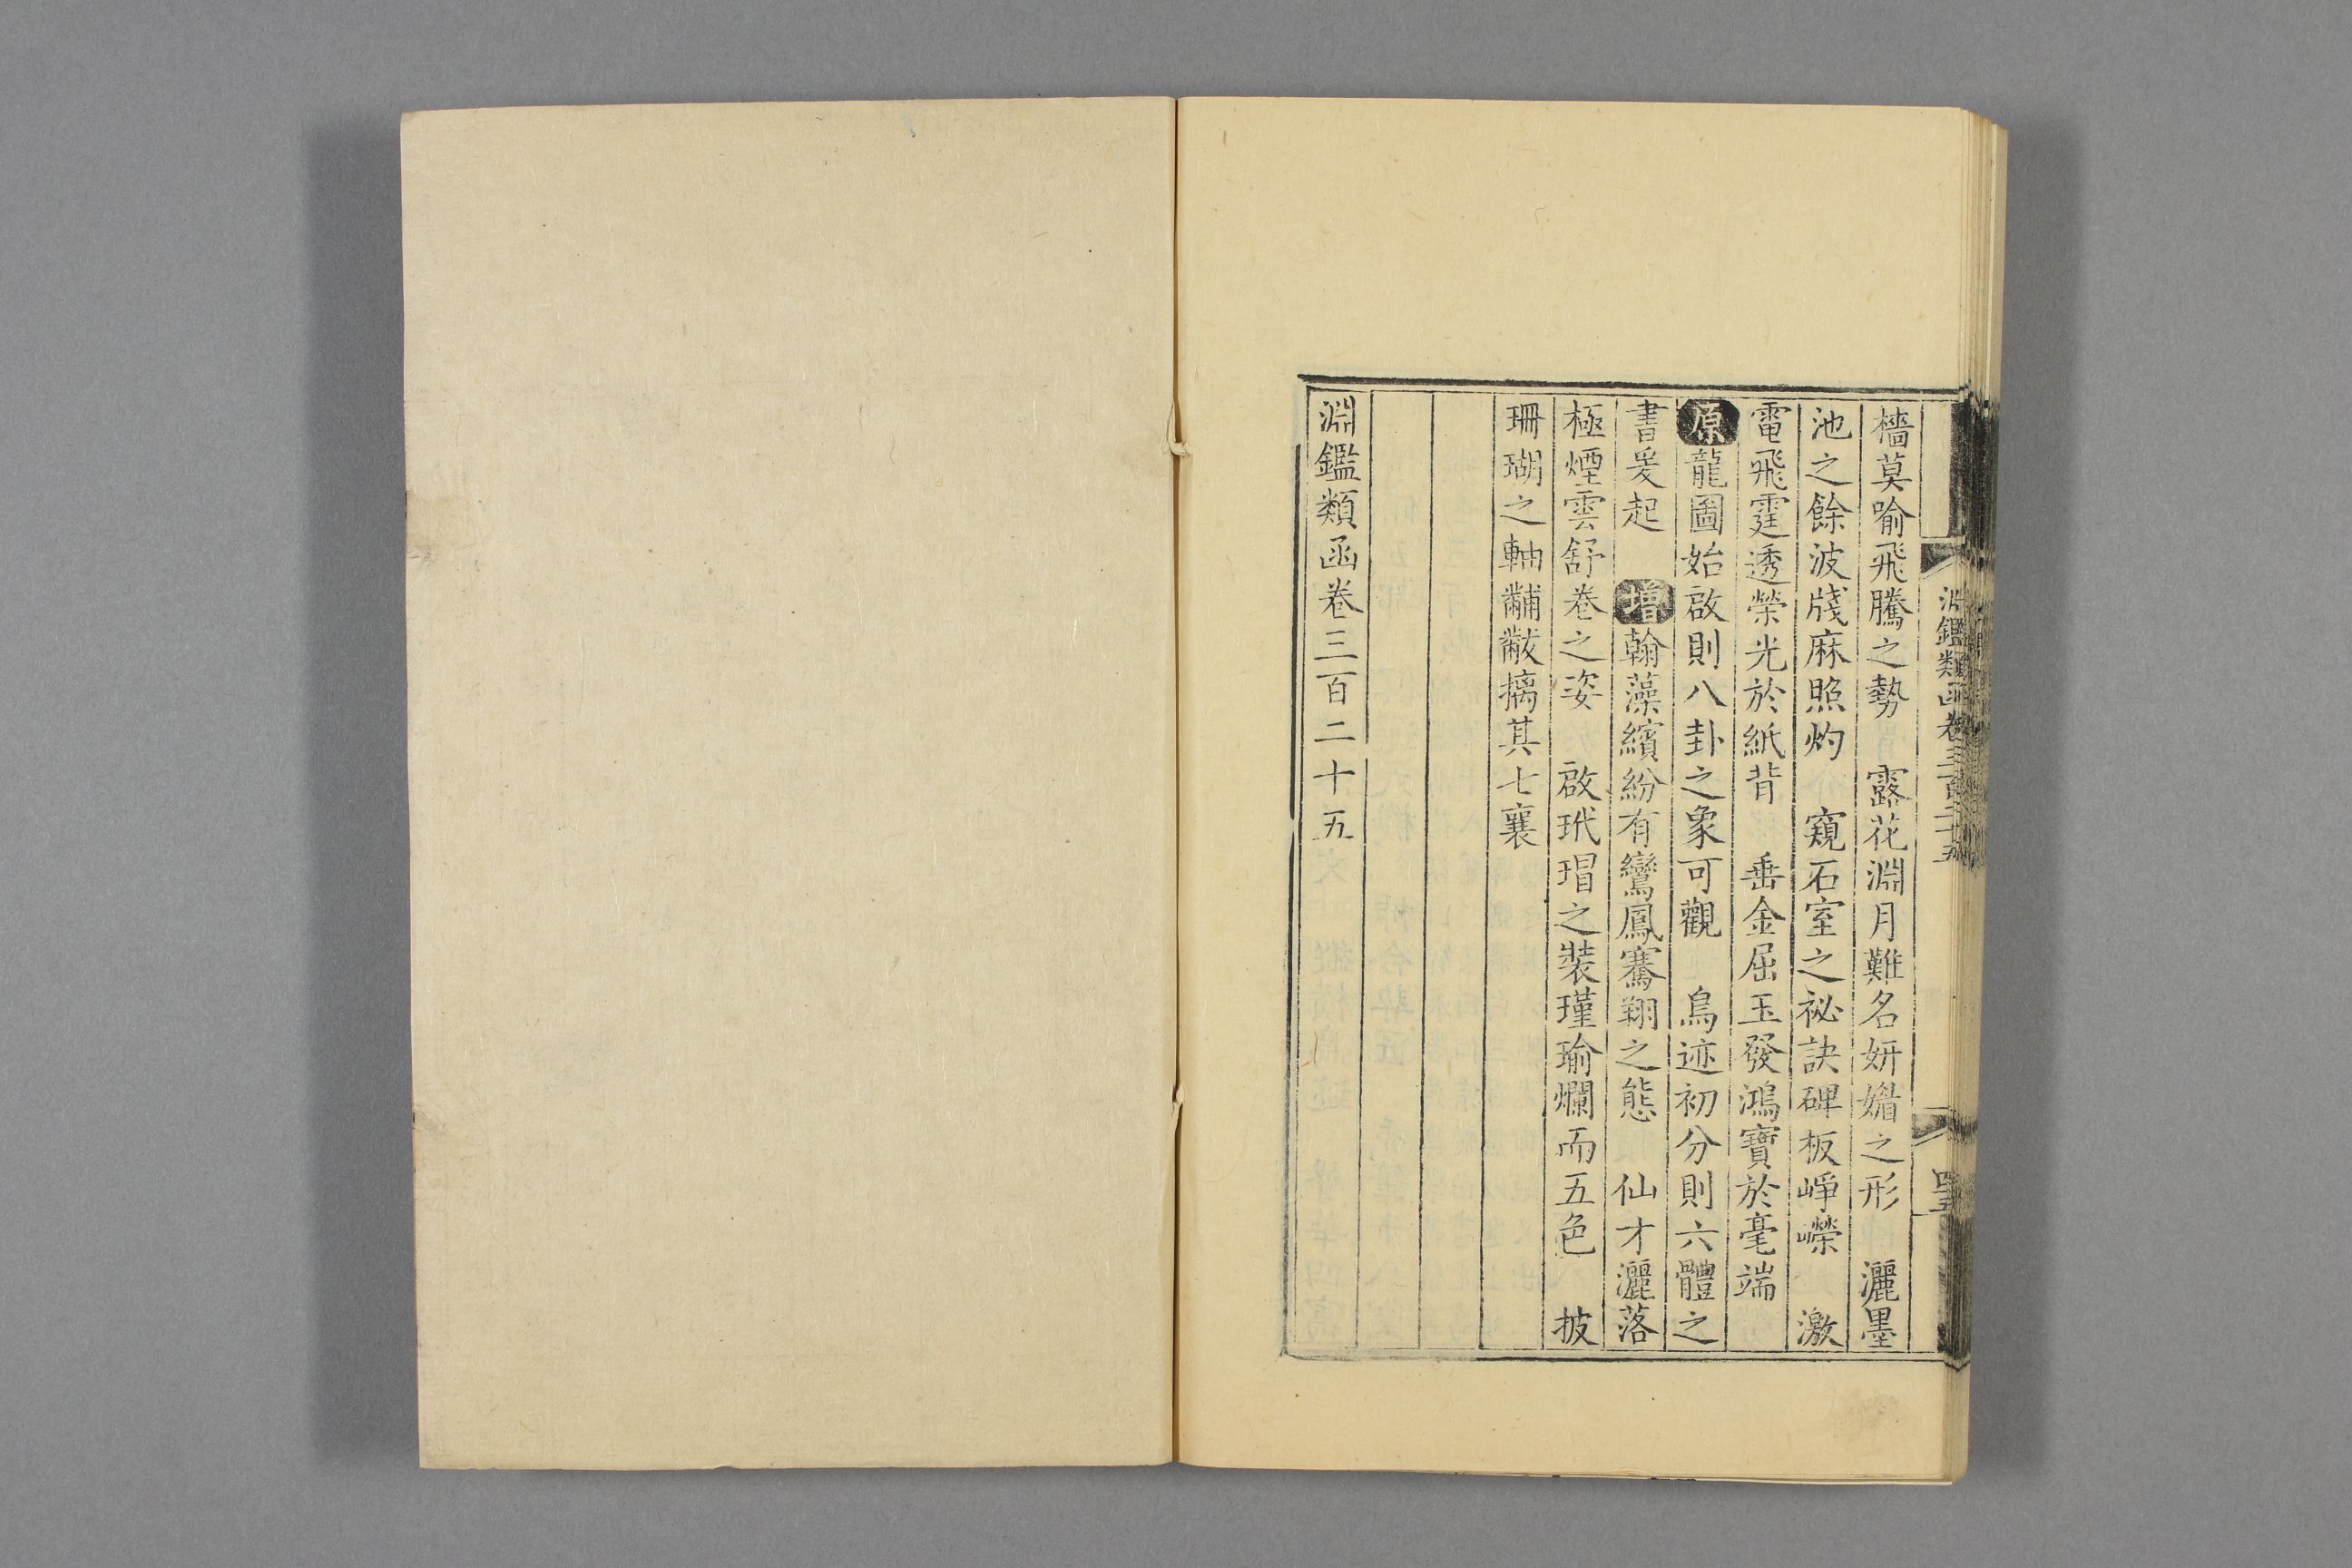 檣莫喻飛騰之勢　露花淵月難名妍媚之形　灑墨
池之餘波牋麻照灼　窺石室之祕訣碑板崢嶸　激
電飛霆透榮光於紙背　垂金屈玉發鴻寶於毫端
原龍圖始啟則八卦之象可觀　鳥迹初分則六體之
書爰起　增翰藻繽紛有鸞鳳騫翔之態　仙才灑落
極煙雲舒卷之姿　啟玳瑁之裝瑾瑜爛而五色　披
珊瑚之軸黼黻摛其七襄
淵鑑類函卷三百二十五
淵鑑類函卷三百二十五